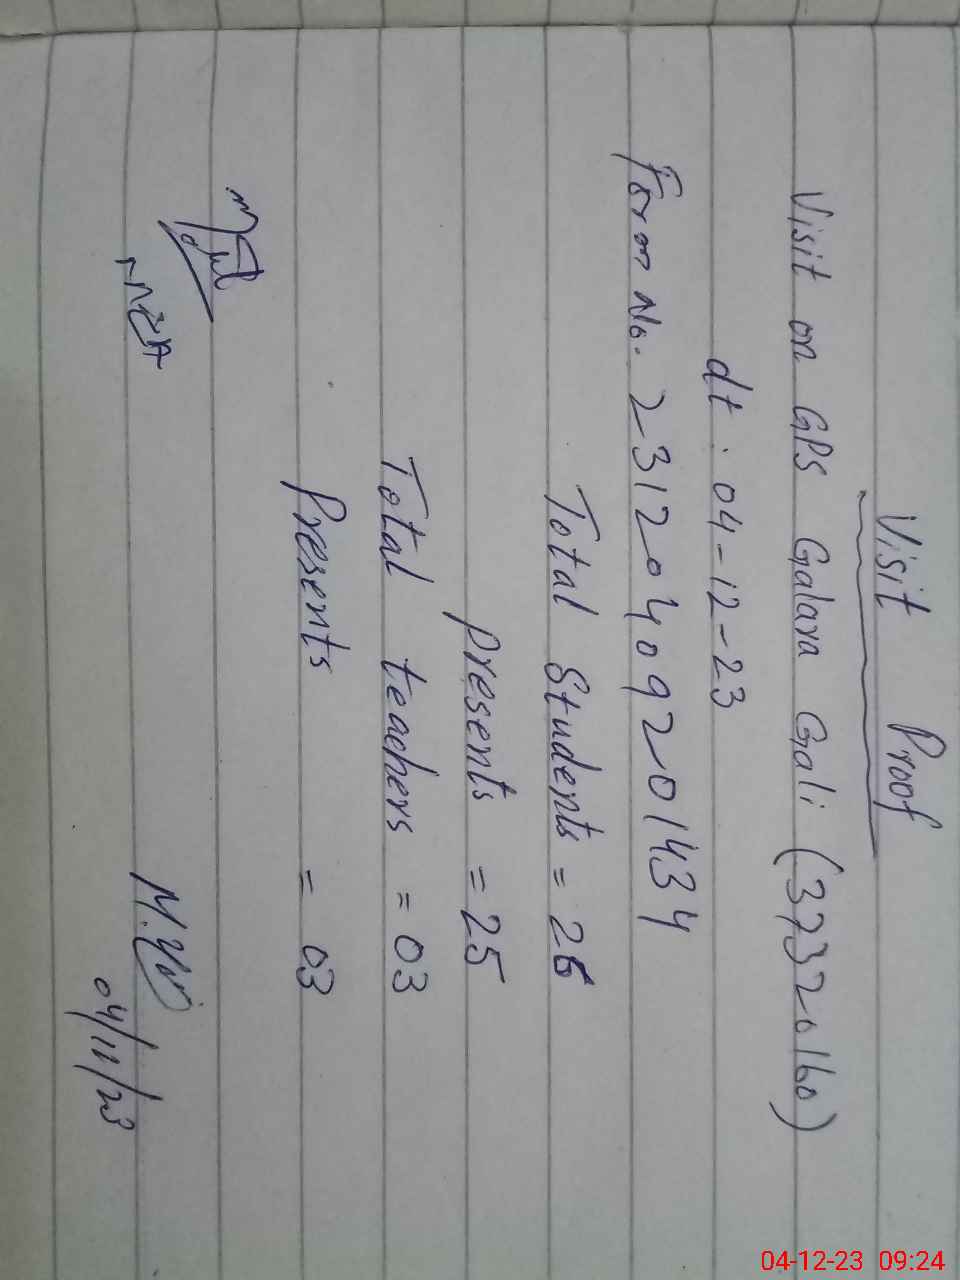 Visit Proof
Visit on GPS Galara Gali (37320160)
dt: 04-12-23
Form No. 23120409201434
Total Students = 26
Presents = 25
Total teachers = 03
Presents = 03
04-12-23 09:24